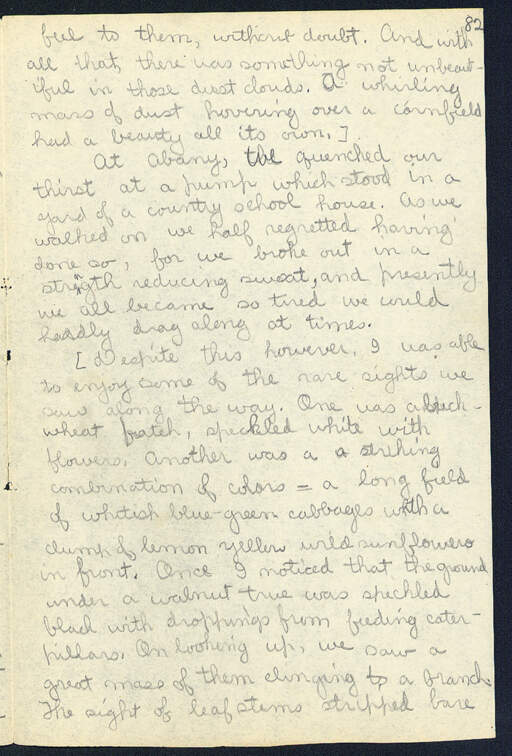 82
feel to them, without doubt. And with
all that, there was something not unbeaut-
iful in those dust clouds. A whirling
mass of dust hovering over a cornfield
had a beauty all its own.]
At Abany, we quenched our
thirst at a pump which stood in a
yard of a country school house. As we
walked on we half regretted having
done so, for we broke out in a
strength reducing sweat, and presently
we all became so tired we could
hardly drag along at times.
[Despite this however, I was able
to enjoy some of the rare sights we
saw along the way. One was a buck-
wheat patch, speckled white with
flowers. Another was a a striking
combination of colors = a long field
of whitish blue-green cabbages with a
clump of lemon yellow wild sunflowers
in front. Once I noticed that the ground
under a walnut true was speckled
black with droppings from feeding cater-
pillars. On looking up, we saw a
great mass of them clinging to a branch.
The sight of leaf stems stripped bare